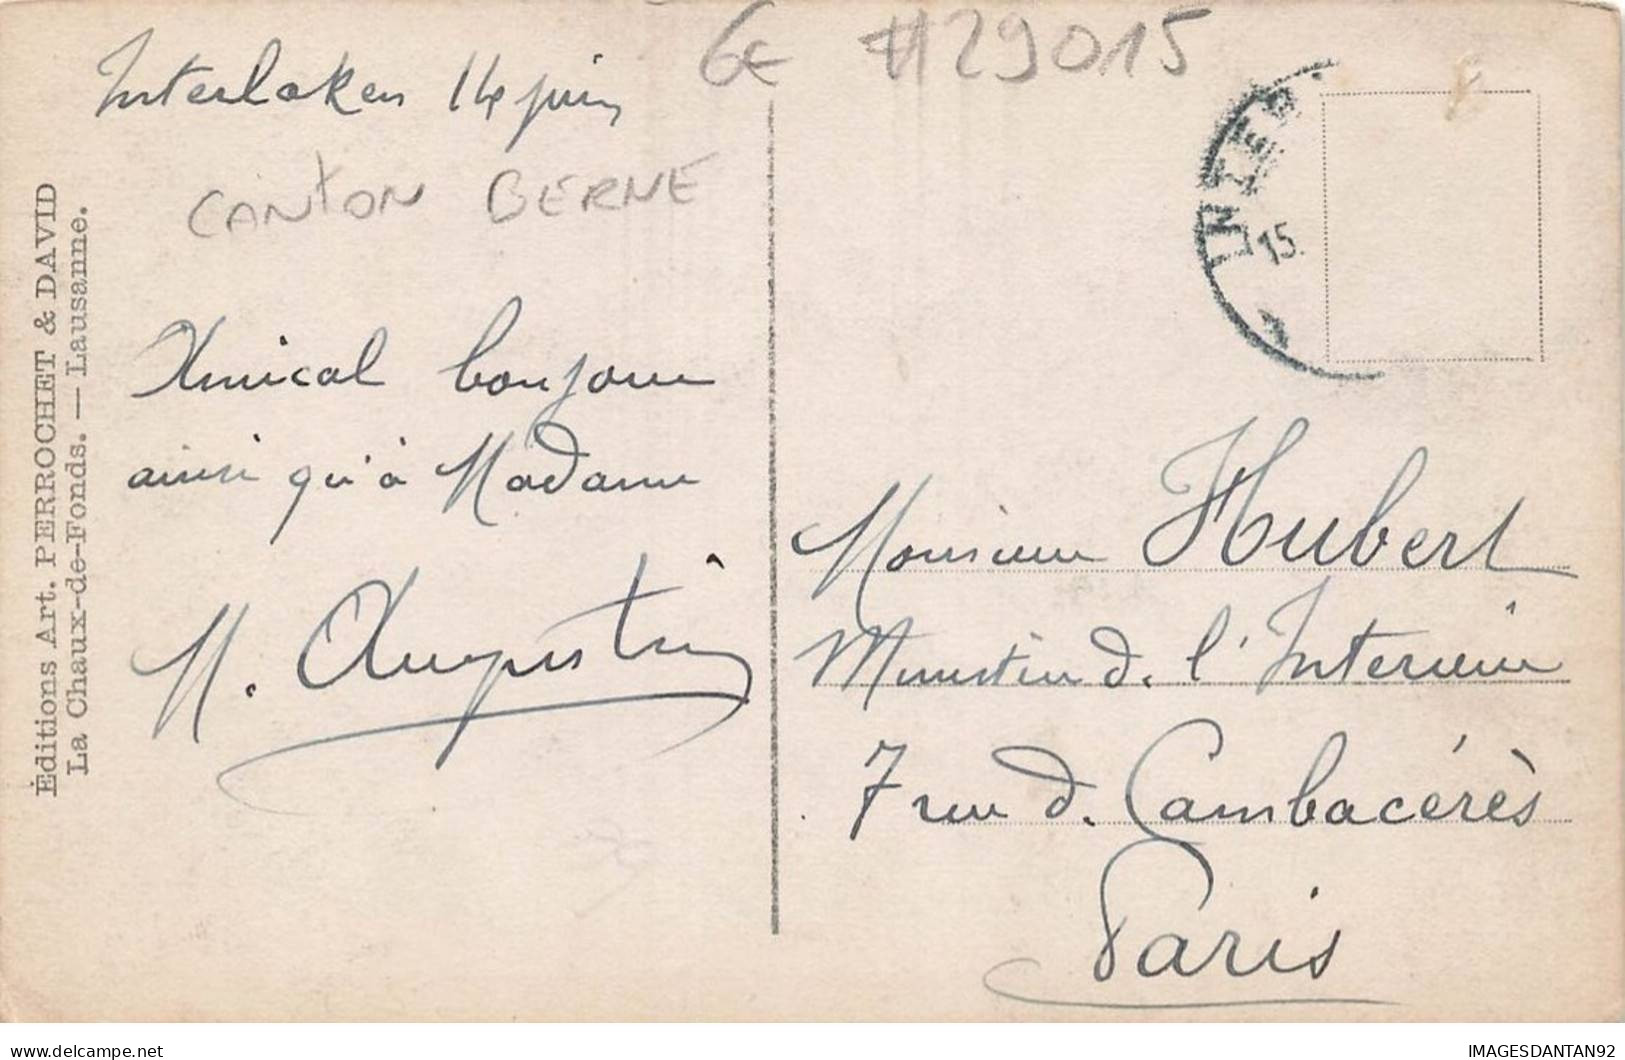 6€ #29015
Interlaken 14 juin
CANTON BERNE
Éditions Art. PERROCHET & DAVID
La Chaux-de-Fonds. — Lausanne.
Amical bonjour
ainsi qu'à Madame
M. Augustin
INTER
15.
Monsieur Hubert
Ministère d. l'Interieur
7 rue d. Cambacérès
Paris
IMAGESDANTAN92